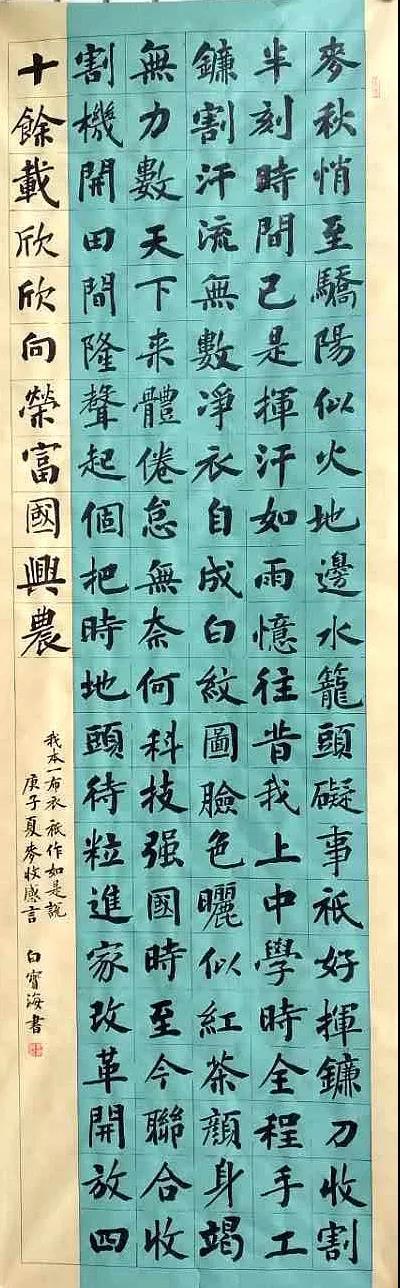 麥秋悄至驕陽似火地邊水籠頭礙事祇好揮鐮刀收割
半刻時間已是揮汗如雨憶往昔我上中學時全程手工
鐮割汗流無數淨衣自成白紋圖臉色曬似紅茶顏身竭
無力數天下来體倦怠無奈何科技强國時至今聯合收
割機開田間隆聲起個把時地頭待粒進家改革開放四
十餘載欣欣向榮富國興農
我本一布衣祇作如是說
庚子夏麥收感言
白寶海書